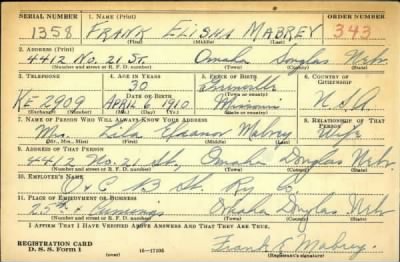 SERIAL NUMBER 1. NAME (Print) ORDER NUMBER
1358 FRANK ELISHA MABREY 343
(First) (Middle) (Last)
2. ADDRESS (Print)
4412 No. 21 St. Omaha Douglas Nebr.
(Number and street or R. F. D. number) (Town) (County) (State)
3. TELEPHONE 4. AGE IN YEARS 5. PLACE OF BIRTH 6. COUNTRY OF CITIZENSHIP
30
DATE OF BIRTH (Town or county)
KE 2909 APRIL 6 1910 Missouri U.S.A.
(Exchange) (Number) (Mo.) (Day) (Yr.) (State or country)
7. NAME OF PERSON WHO WILL ALWAYS KNOW YOUR ADDRESS 8. RELATIONSHIP OF THAT PERSON
Mrs. Lila Eleanor Mabrey Wife
(Mr., Mrs., Miss) (First) (Middle) (Last)
9. ADDRESS OF THAT PERSON
4412 No. 21 St., Omaha Douglas Nebr.
(Number and street or R. F. D. number) (Town) (County) (State)
10. EMPLOYER'S NAME
O & C B St. Ry Co.
11. PLACE OF EMPLOYMENT OR BUSINESS
25th & Cumings Omaha Douglas Nebr
(Number and street or R. F. D. number) (Town) (County) (State)
I AFFIRM THAT I HAVE VERIFIED ABOVE ANSWERS AND THAT THEY ARE TRUE.
REGISTRATION CARD
D. S. S. Form 1 16—17105 Frank E Mabrey
(Registrant's signature)